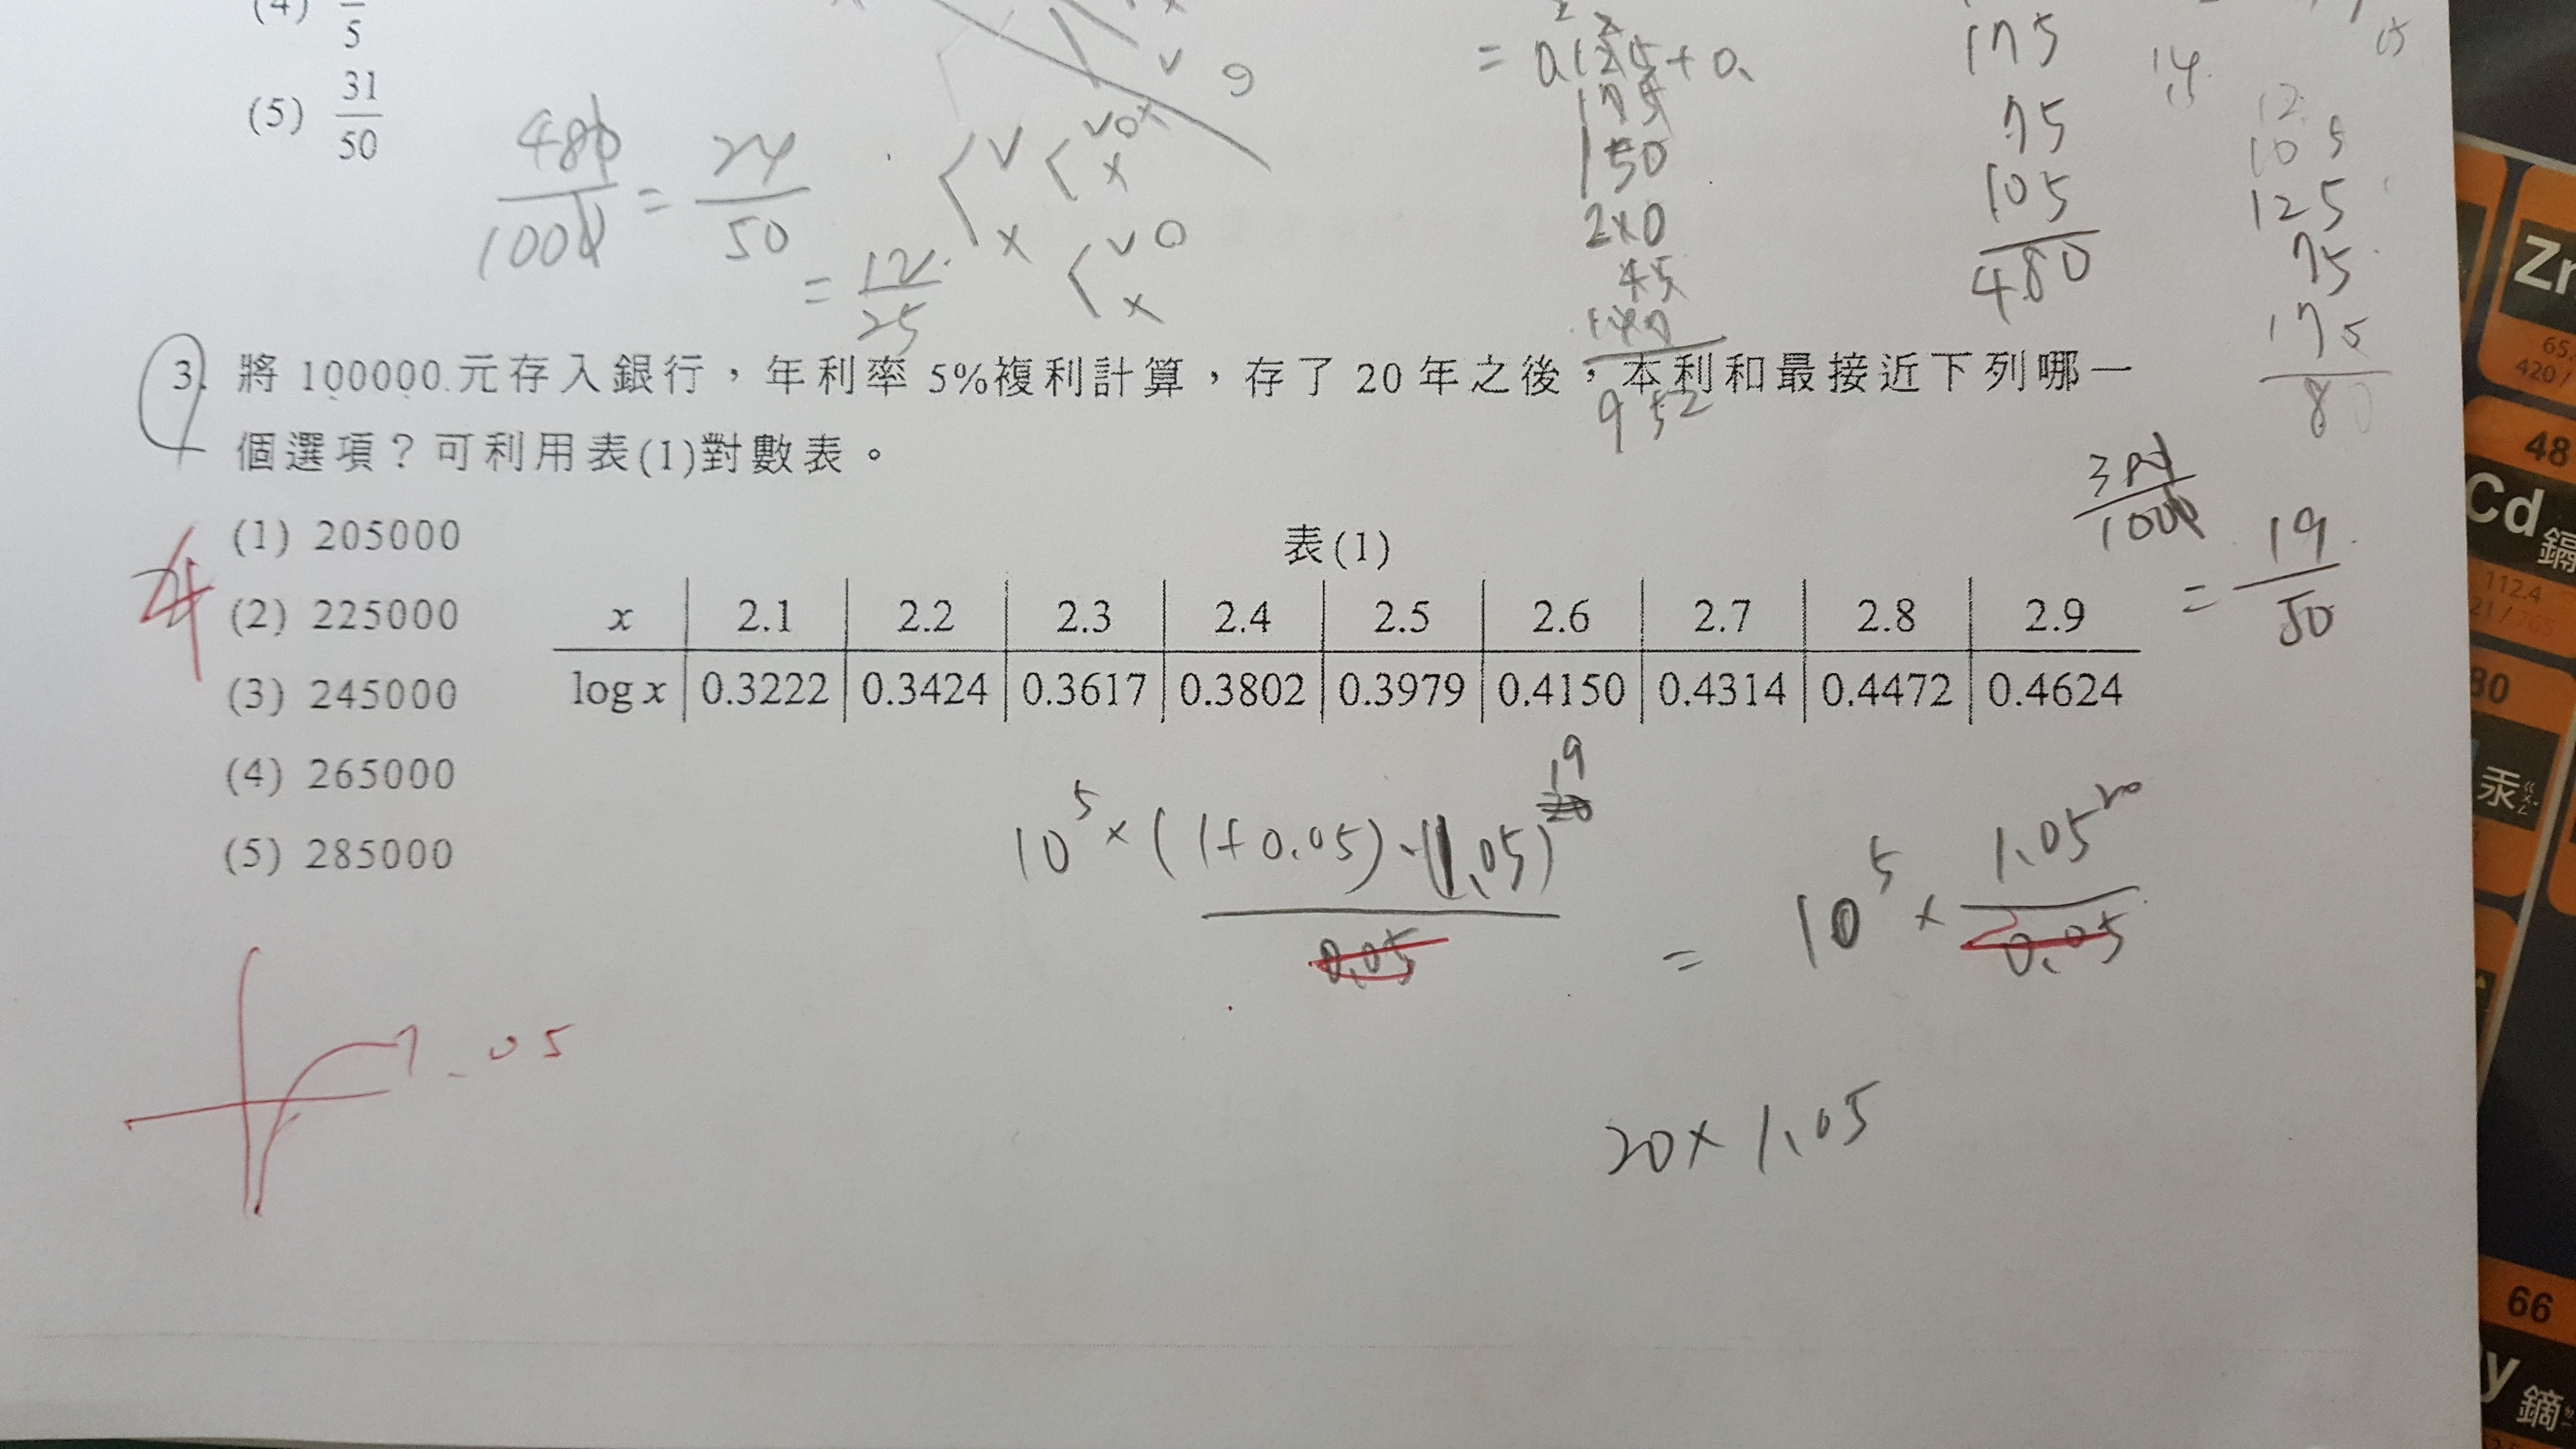 (4) 5
(5) 31/50
480/1000 = 24/50
= 12/25
= 0.125 + 0.
175
150
45
952
175
75
105
480
125
75
175
80
3. 將 100000 元存入銀行，年利率 5%複利計算，存了 20 年之後，本利和最接近下列哪一
個選項？可利用表(1)對數表。
(1) 205000
(2) 225000
(3) 245000
(4) 265000
(5) 285000
4
表(1)
x 2.1 2.2 2.3 2.4 2.5 2.6 2.7 2.8 2.9
log x 0.3222 0.3424 0.3617 0.3802 0.3979 0.4150 0.4314 0.4472 0.4624
= 19/50
10^5 × (1+0.05)·(1.05)^19 / 0.05 = 10^5 × 1.05^20 / 0.05
1.05
20 × 1.05
Zr
65.
420 /
48
Cd 鎘
112.4
80
汞
66
y 鏑